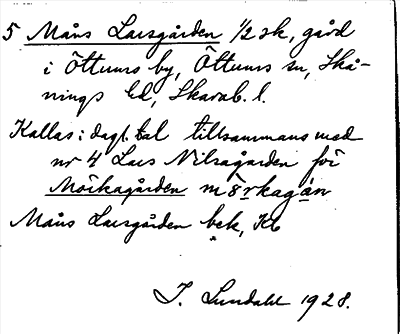 5 Måns Larsgården 1/2 sk, gård
i Öttums by, Öttums sn, Skå-
nings hd, Skarab. l.
Kallas i dagl. tal tillsammans med
nr 4 Lars Nilsagården för
Mörkagården mörkagån
Måns Larsgården bek, Kb
J. Lundahl 1928.